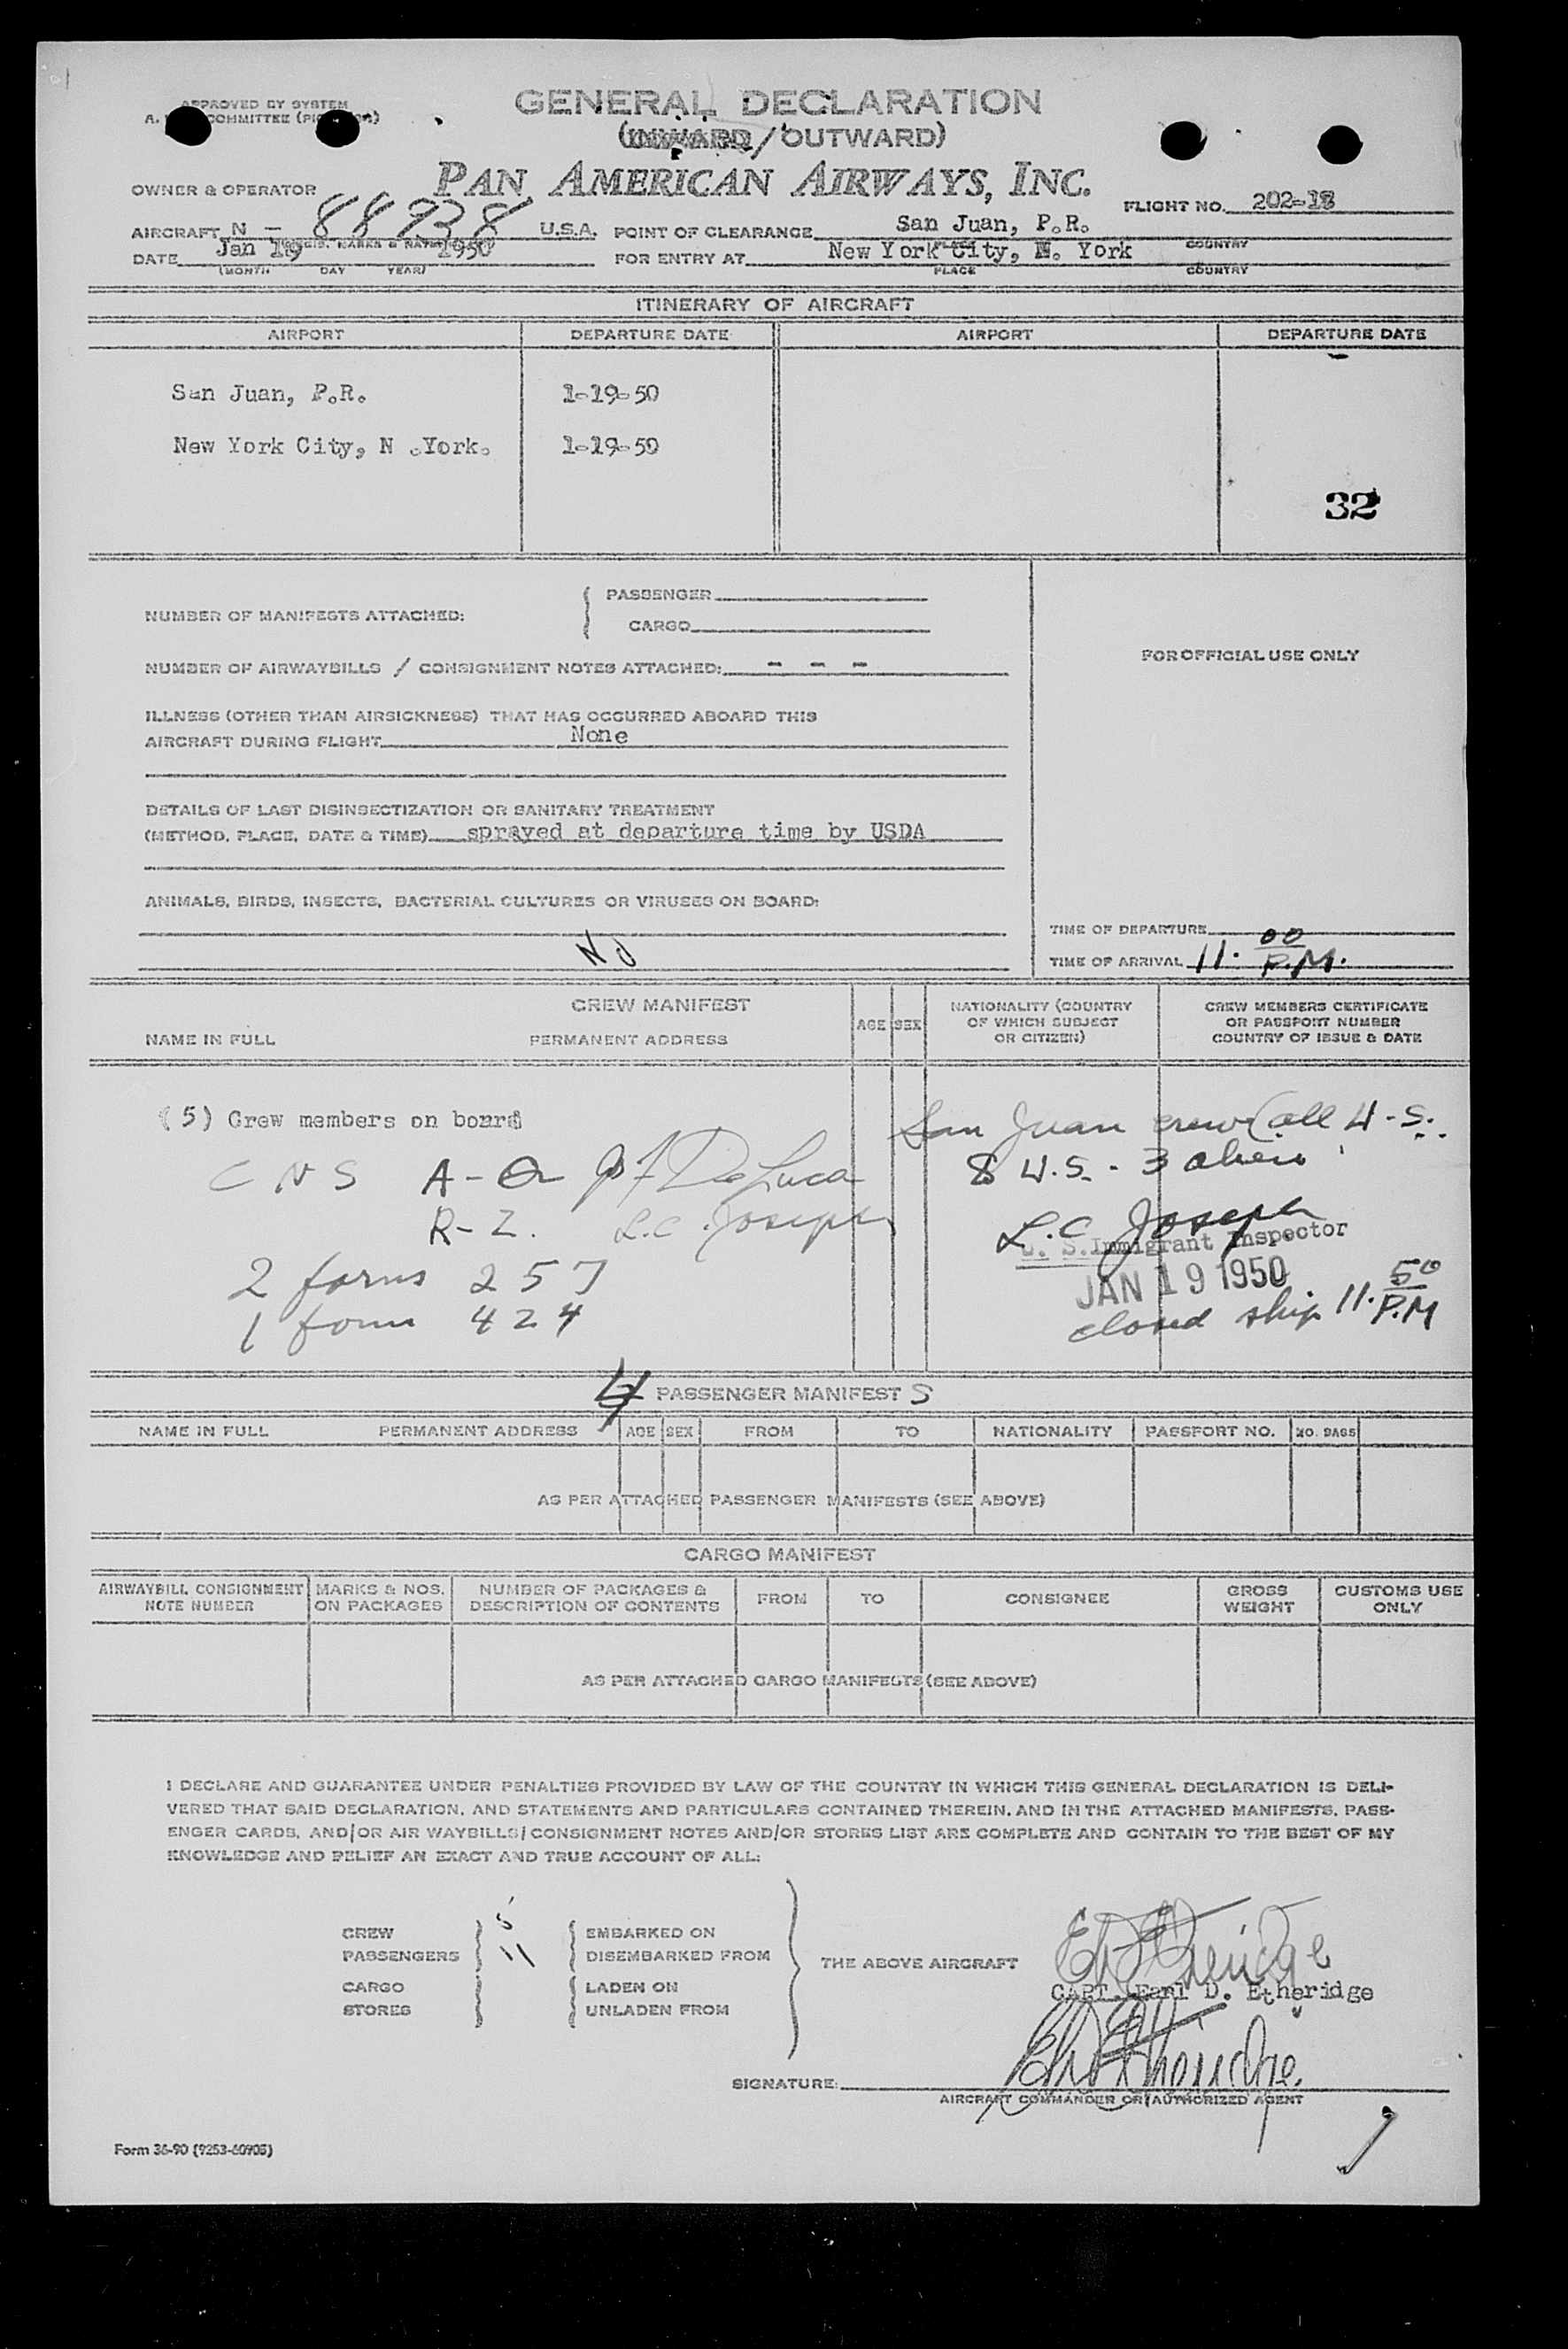 APPROVED BY SYSTEM
A. COMMITTEE
GENERAL DECLARATION
(INWARD/OUTWARD)
PAN AMERICAN AIRWAYS, INC.
OWNER & OPERATOR
FLIGHT NO. 202-18
AIRCRAFT N - 88938 U.S.A. POINT OF CLEARANCE San Juan, P.R.
MARKS & COUNTRY
DATE Jan 19 1950 FOR ENTRY AT New York City, N. York
(MONTH DAY YEAR) PLACE COUNTRY
ITINERARY OF AIRCRAFT
AIRPORT DEPARTURE DATE AIRPORT DEPARTURE DATE
San Juan, P.R. 1-19-50
New York City, N .York. 1-19-50
32
NUMBER OF MANIFESTS ATTACHED: PASSENGER
CARGO
NUMBER OF AIRWAYBILLS / CONSIGNMENT NOTES ATTACHED: - - -
FOR OFFICIAL USE ONLY
ILLNESS (OTHER THAN AIRSICKNESS) THAT HAS OCCURRED ABOARD THIS
AIRCRAFT DURING FLIGHT None
DETAILS OF LAST DISINSECTIZATION OR SANITARY TREATMENT
(METHOD, PLACE, DATE & TIME) sprayed at departure time by USDA
ANIMALS, BIRDS, INSECTS, BACTERIAL CULTURES OR VIRUSES ON BOARD:
No
TIME OF DEPARTURE
TIME OF ARRIVAL 11.00 P.M.
CREW MANIFEST
NAME IN FULL PERMANENT ADDRESS AGE SEX NATIONALITY (COUNTRY OF WHICH SUBJECT OR CITIZEN) CREW MEMBERS CERTIFICATE OR PASSPORT NUMBER COUNTRY OF ISSUE & DATE
(5) Crew members on board
San Juan crew (all U.S.
C N S A-Q DeLuca
8 U.S. - 3 alien
R-Z. L.C. Joseph
L.C Joseph
U. S. Immigrant Inspector
2 forms 257
JAN 19 1950
1 form 424
closed ship 11.50 P.M
4 PASSENGER MANIFEST S
NAME IN FULL PERMANENT ADDRESS AGE SEX FROM TO NATIONALITY PASSPORT NO. NO. BAGS
AS PER ATTACHED PASSENGER MANIFESTS (SEE ABOVE)
CARGO MANIFEST
AIRWAYBILL CONSIGNMENT NOTE NUMBER MARKS & NOS. ON PACKAGES NUMBER OF PACKAGES & DESCRIPTION OF CONTENTS FROM TO CONSIGNEE GROSS WEIGHT CUSTOMS USE ONLY
AS PER ATTACHED CARGO MANIFESTS (SEE ABOVE)
I DECLARE AND GUARANTEE UNDER PENALTIES PROVIDED BY LAW OF THE COUNTRY IN WHICH THIS GENERAL DECLARATION IS DELI-
VERED THAT SAID DECLARATION, AND STATEMENTS AND PARTICULARS CONTAINED THEREIN, AND IN THE ATTACHED MANIFESTS, PASS-
ENGER CARDS, AND/OR AIR WAYBILLS/CONSIGNMENT NOTES AND/OR STORES LIST ARE COMPLETE AND CONTAIN TO THE BEST OF MY
KNOWLEDGE AND BELIEF AN EXACT AND TRUE ACCOUNT OF ALL:
CREW 5 EMBARKED ON
PASSENGERS 11 DISEMBARKED FROM
THE ABOVE AIRCRAFT
CARGO LADEN ON
STORES UNLADEN FROM
CAPT. Earl D. Etheridge
SIGNATURE:
AIRCRAFT COMMANDER OR AUTHORIZED AGENT
Form 36-90 (9253-60905)